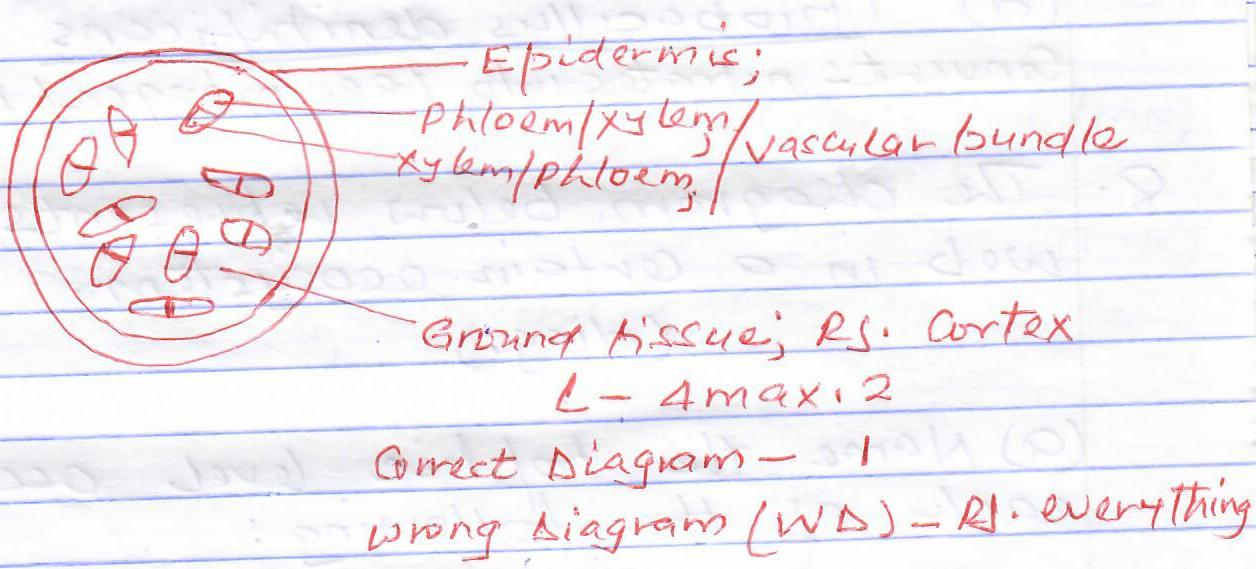 Epidermis;
Phloem/xylem;/vascular bundle
xylem/phloem;
Ground tissue; Rj. Cortex
L - 4 max. 2
Correct Diagram - 1
Wrong Diagram (WD) - Rj. everything